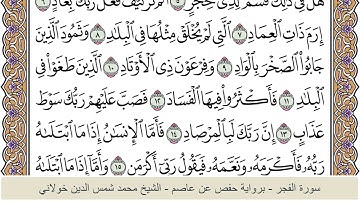 هَلْ فِي ذَٰلِكَ قَسَمٌ لِّذِي حِجْرٍ ٥ أَلَمْ تَرَ كَيْفَ فَعَلَ رَبُّكَ بِعَادٍ ٦
إِرَمَ ذَاتِ ٱلْعِمَادِ ٧ ٱلَّتِي لَمْ يُخْلَقْ مِثْلُهَا فِي ٱلْبِلَٰدِ ٨ وَثَمُودَ ٱلَّذِينَ
جَابُوا۟ ٱلصَّخْرَ بِٱلْوَادِ ٩ وَفِرْعَوْنَ ذِي ٱلْأَوْتَادِ ١٠ ٱلَّذِينَ طَغَوْا۟ فِي
ٱلْبِلَٰدِ ١١ فَأَكْثَرُوا۟ فِيهَا ٱلْفَسَادَ ١٢ فَصَبَّ عَلَيْهِمْ رَبُّكَ سَوْطَ
عَذَابٍ ١٣ إِنَّ رَبَّكَ لَبِٱلْمِرْصَادِ ١٤ فَأَمَّا ٱلْإِنسَٰنُ إِذَا مَا ٱبْتَلَىٰهُ
رَبُّهُۥ فَأَكْرَمَهُۥ وَنَعَّمَهُۥ فَيَقُولُ رَبِّي أَكْرَمَنِ ١٥ وَأَمَّآ إِذَا مَا ٱبْتَلَىٰهُ
سورة الفجر - برواية حفص عن عاصم - الشيخ محمد شمس الدين خولاني